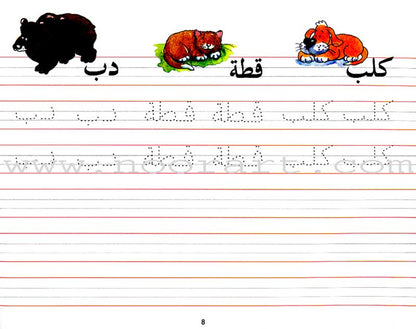 كلب قطة دب
كلب كلب قطة قطة دب دب
كلب كلب قطة قطة دب دب
www.noorart.com
8